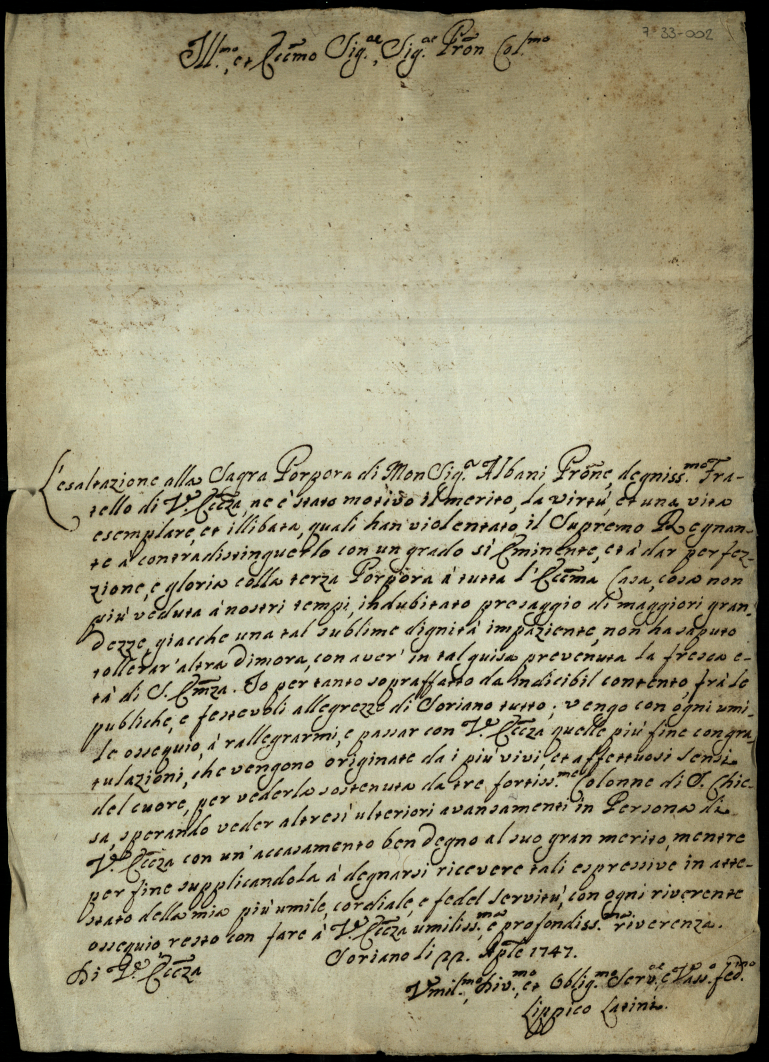 7-33-002
Ill.mo, et Ecc̃mo Sig.re, Sig.re Prõn Col.mo
L'esaltazione alla Sagra Porpora di MonSig.r Albani Prõne, degniss.mo Fra-
tello di V. Ecc̃za, ne è stato motivo il merito, la virtù, et una vita
esemplare, et illibata, quali han violentato il Supremo Regnan-
te à contradistinguerlo con un grado sì Eminente, et à dar perfez-
zione, e gloria colla terza Porpora à tutta l'Ecc̃ma Casa, cosa non
più veduta à nostri tempi, indubitato presaggio di maggiori gran-
dezze, giacche una tal sublime dignità impaziente, non ha saputo
tollerar' altra dimora, con aver' in tal guisa prevenuta la fresca e-
tà di S. Em̃za. Io per tanto sopraffatto da indicibil contento, frà le
publiche, e festevoli allegrezze di Soriano tutto; vengo con ogni umi-
le ossequio, à rallegrarmi, e passar con V. Ecc̃za quelle più fine congra-
tulazioni, che vengono originate da i più vivi, et affettuosi sensi
del cuore, per vederla sostenuta da tre fortiss.me Colonne di S. Chie-
sa, sperando veder altresì ulteriori avansamenti in Persona di
V. Ecc̃za con un' accasamento ben degno al suo gran merito, mentre
per fine supplicandola à degnarsi ricevere tali espressive in atte-
stato della mia più umile, cordiale, e fedel servitù, con ogni riverente
ossequio resto con fare à V. Ecc̃za umiliss.ma, e profondiss.ma riverenza.
Soriano li 22. Aple 1747.
Di V. Ecc̃za
Umil.mo, Div.mo, et Oblig.mo Serv.re, e Vass.o fed.mo
Lippico Latini.